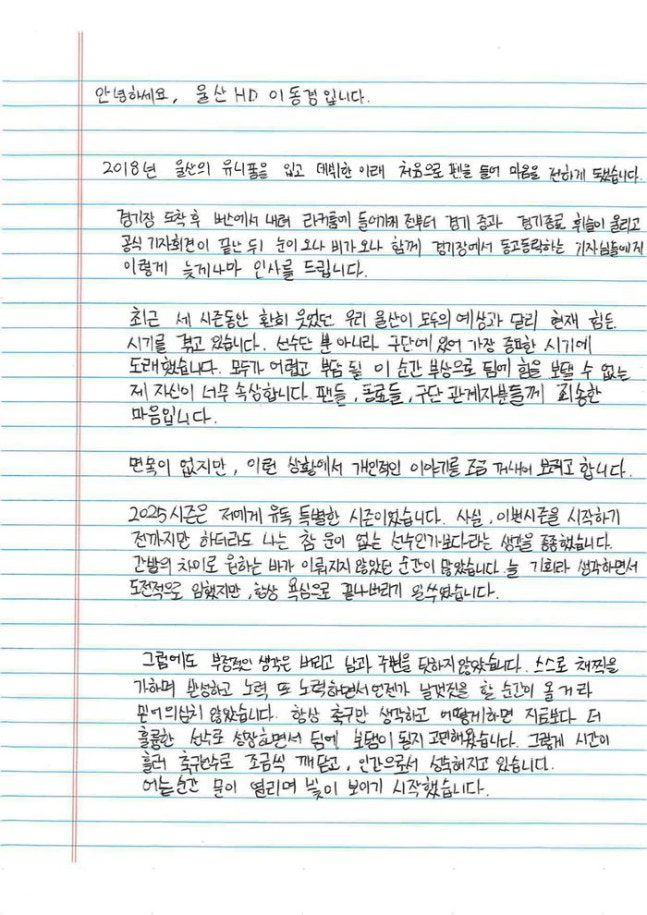 안녕하세요, 울산 HD 이동경입니다.
2018년 울산의 유니폼을 입고 데뷔한 이래 처음으로 펜을 들어 마음을 전하게 됐습니다
경기장 도착 후 버스에서 내려 라커룸에 들어가기 전부터 경기 중과 경기종료 휘슬이 울리고
공식 기자회견이 끝난 뒤 눈이 오나 비가 오나 함께 경기장에서 동고동락하는 기자님들에게
이렇게 늦게나마 인사를 드립니다.
최근 세 시즌동안 환희 웃었던 우리 울산이 모두의 예상과 달리 현재 힘든
시기를 겪고 있습니다. 선수단 뿐 아니라 구단에 있어 가장 중요한 시기에
도래했습니다. 모두가 어렵고 부담 될 이 순간 부상으로 팀에 힘을 보탤 수 없는
제 자신이 너무 속상합니다. 팬들, 동료들, 구단 관계자분들께 죄송한
마음입니다.
면목이 없지만, 이런 상황에서 개인적인 이야기를 조금 꺼내어 보려고 합니다.
2025시즌은 저에게 유독 특별한 시즌이었습니다. 사실, 이번시즌을 시작하기
전까지만 하더라도 나는 참 운이 없는 선수인가보다라는 생각을 종종했습니다.
간발의 차이로 원하는 바가 이뤄지지 않았던 순간이 많았습니다. 늘 기회라 생각하면서
도전적으로 임했지만, 항상 욕심으로 끝나버리기 일쑤였습니다.
그럼에도 부정적인 생각은 버리고 남과 주변을 탓하지 않았습니다. 스스로 채찍을
가하며 반성하고 노력 또 노력하면서 언젠가 날갯짓을 할 순간이 올 거라
믿어 의심치 않았습니다. 항상 축구만 생각하고 어떻게하면 지금보다 더
훌륭한 선수로 성장하면서 팀에 보탬이 될지 고민해왔습니다. 그렇게 시간이
흘러 축구선수로 조금씩 깨닫고, 인간으로서 성숙해지고 있습니다.
어느순간 문이 열리며 빛이 보이기 시작했습니다.